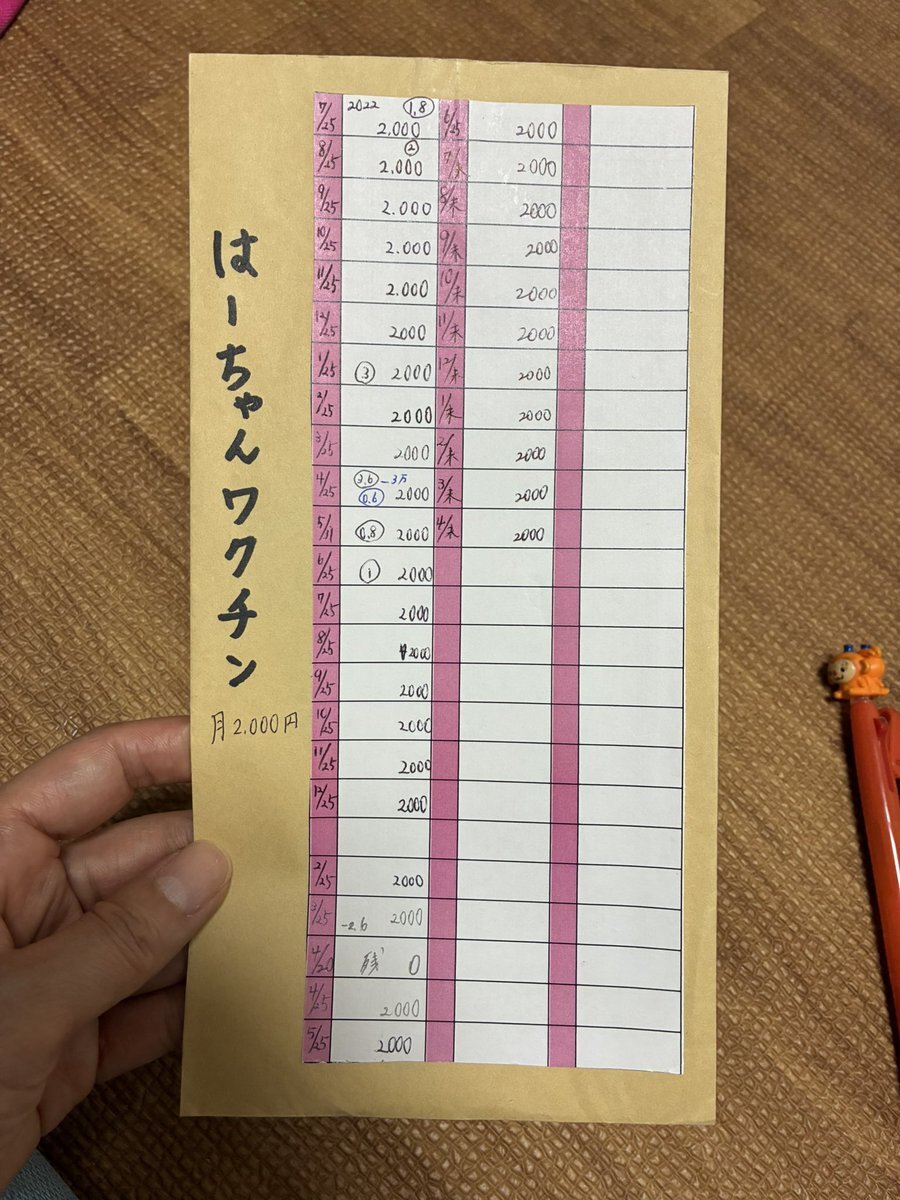 はーちゃんワクチン
月2.000円
7/25 2022 1.8 2.000
8/25 2 2.000
9/25 2.000
10/25 2.000
11/25 2.000
12/25 2000
1/25 3 2000
2/25 2000
3/25 2000
4/25 3.6 -3万 0.6 2000
5/11 0.8 2000
6/25 1 2000
7/25 2000
8/25 2000
9/25 2000
10/25 2000
11/25 2000
12/25 2000
2/25 2000
3/25 -2.6 2000
4/20 残 0
4/25 2000
5/25 2000
6/25 2000
7/末 2000
8/末 2000
9/末 2000
10/末 2000
11/末 2000
12/末 2000
1/末 2000
2/末 2000
3/末 2000
4/末 2000